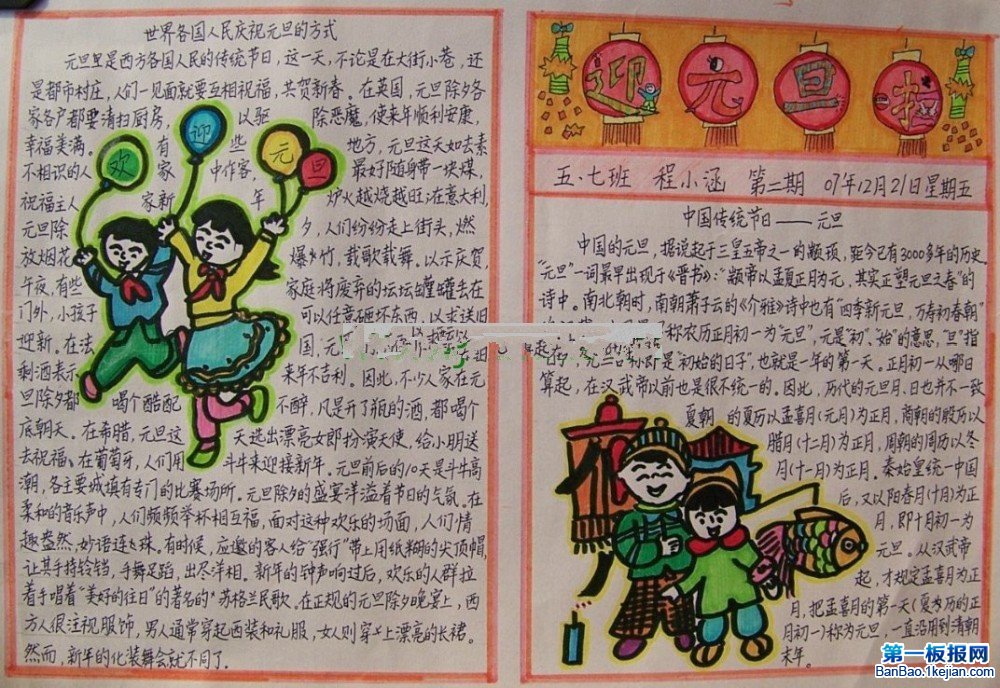 世界各国人民庆祝元旦的方式
元旦里是西方各国人民的传统节日，这一天，不论是在大街小巷，还
是都市村庄，人们一见面就要互相祝福，共贺新春。在英国，元旦除夕各
家各户都要清扫厨房，以驱除恶魔，使来年顺利安康，
幸福美满。有些地方，元旦这天如去素
不相识的人家中作客，最好随身带一块煤，
祝福主人家新年炉火越烧越旺；在意大利，
元旦除夕，人们纷纷走上街头，燃
放烟花爆竹，载歌载舞。以示庆贺
午夜，有些家庭将废弃的坛坛罐罐丢在
门外，小孩子可以任意砸坏东西，以求送旧
迎新。在法国，元
剩酒表示来年不吉利。因此，不少人家在元
旦除夕都喝个酩酊不醉，凡是开了瓶的酒，都喝个
底朝天。在希腊，元旦这天选出漂亮女郎扮演天使，给小朋送
去祝福。在葡萄牙，人们用斗牛来迎接新年。元旦前后的10天是斗牛高
潮，各主要城填有专门的比赛场所。元旦除夕的盛宴洋溢着节日的气氛。在
柔和的音乐声中，人们频频举杯相互福，面对这种欢乐的场面，人们情
趣盎然，妙语连珠。有时候，应邀的客人给“强行”带上用纸糊的尖顶帽，
让其手持铃铛，手舞足蹈，出尽洋相。新年的钟声响过后，欢乐的人群拉
着手唱着“美好的往日”的著名的苏格兰民歌。在正规的元旦除夕晚宴上，西
方人很注视服饰，男人通常穿起西装和礼服，女人则穿上漂亮的长裙。
然而，新年的化装舞会就不同了。
欢
迎
元
旦
迎元旦
五.七班 程小涵 第二期 07年12月21日星期五
中国传统节日——元旦
中国的元旦，据说起于三皇五帝之一的颛顼，距今已有3000多年的历史
“元旦”一词最早出现于《晋书》：“颛帝以孟夏正月为元，其实正塑元旦之春”的
诗中。南北朝时，南朝萧子云的《介雅》诗中也有“四季新元旦，万寿初春朝”
称农历正月初一为“元旦”，“元”是“初”、“始”的意思，“旦”指
是“初始的日子”，也就是一年的第一天。正月初一从哪日
算起，在汉武帝以前也是很不统一的。因此，历代的元旦月、日也并不一致
夏朝的夏历以孟喜月（元月）为正月，商朝的殷历以
腊月（十二月）为正月，周朝的周历以冬
月（十一月）为正月。秦始皇统一中国
后，又以阳春月（十月）为正
月，即十月初一为
元旦。从汉武帝
起，才规定孟喜月为正
月，把孟喜月的第一天（夏历的正
月初一）称为元旦，一直沿用到清朝
末年。
第一板报网
BanBao.1kejian.com